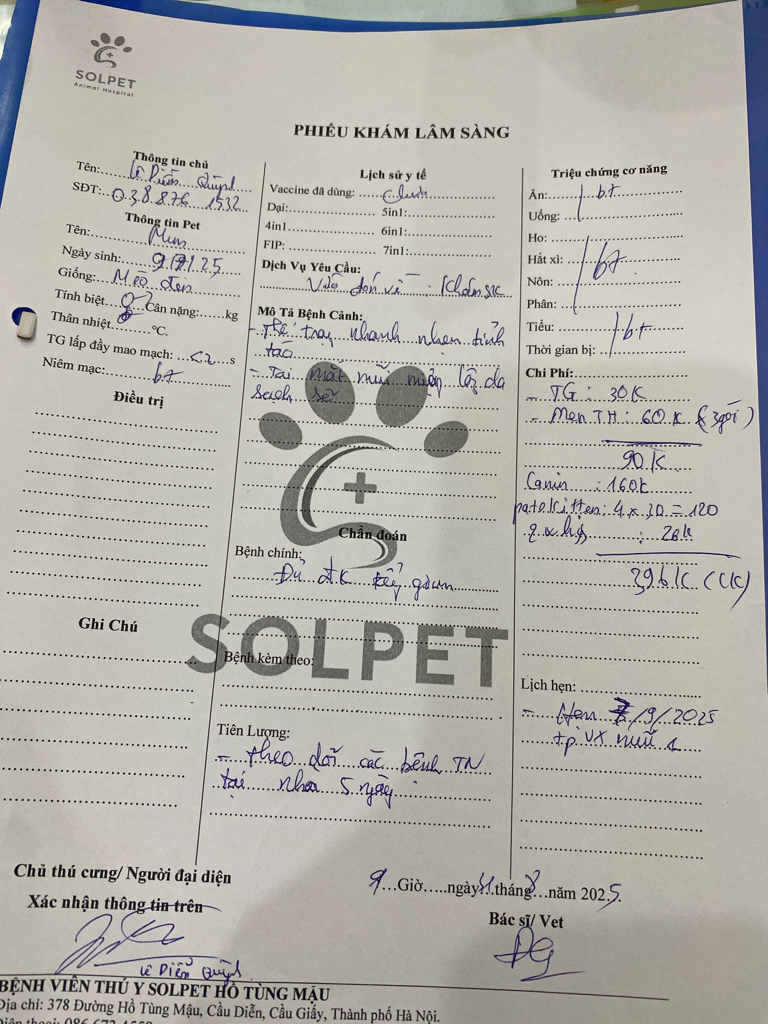 SOLPET
Animal Hospital
PHIẾU KHÁM LÂM SÀNG
Thông tin chủ
Tên: Lê Diễm Quỳnh
SĐT: 038.876 1532
Thông tin Pet
Tên: Mun
Ngày sinh:
Giống: Mèo đen
Tính biệt Cân nặng: kg
Thân nhiệt °C.
TG lấp đầy mao mạch: <2 s
Niêm mạc: bt
Điều trị
Ghi Chú
Lịch sử y tế
Vaccine đã dùng: chưa
Dại: 5in1:
4in1 6in1:
FIP: 7in1:
Dịch Vụ Yêu Cầu:
Vừa đón về: Khám sk
Mô Tả Bệnh Cảnh:
- Thể trạng nhanh nhẹn tỉnh
táo
- Tai mắt mũi miệng lông da
sạch sẽ
Chẩn đoán
Bệnh chính:
Đủ đk tẩy giun
SOLPET
Bệnh kèm theo:
Tiên Lượng:
- theo dõi các bệnh TN
tại nhà 5 ngày
Triệu chứng cơ năng
Ăn: bt
Uống:
Ho:
Hắt xì: bt
Nôn:
Phân:
Tiểu: bt
Thời gian bị:
Chi Phí:
- TG: 30K
- Men TH: 60K (3gói)
90K
Canin: 160k
pate kitten: 4 x 30 = 120
: 26k
396K (CK)
Lịch hẹn:
- Hẹn 7/9/2025
tp vx mũi 1
Chủ thú cưng/ Người đại diện
Xác nhận thông tin trên
Lê Diễm Quỳnh
9 Giờ ngày 31 tháng 8 năm 2025.
Bác sĩ/ Vet
BỆNH VIỆN THÚ Y SOLPET HỒ TÙNG MẬU
Địa chỉ: 378 Đường Hồ Tùng Mậu, Cầu Diễn, Cầu Giấy, Thành phố Hà Nội.